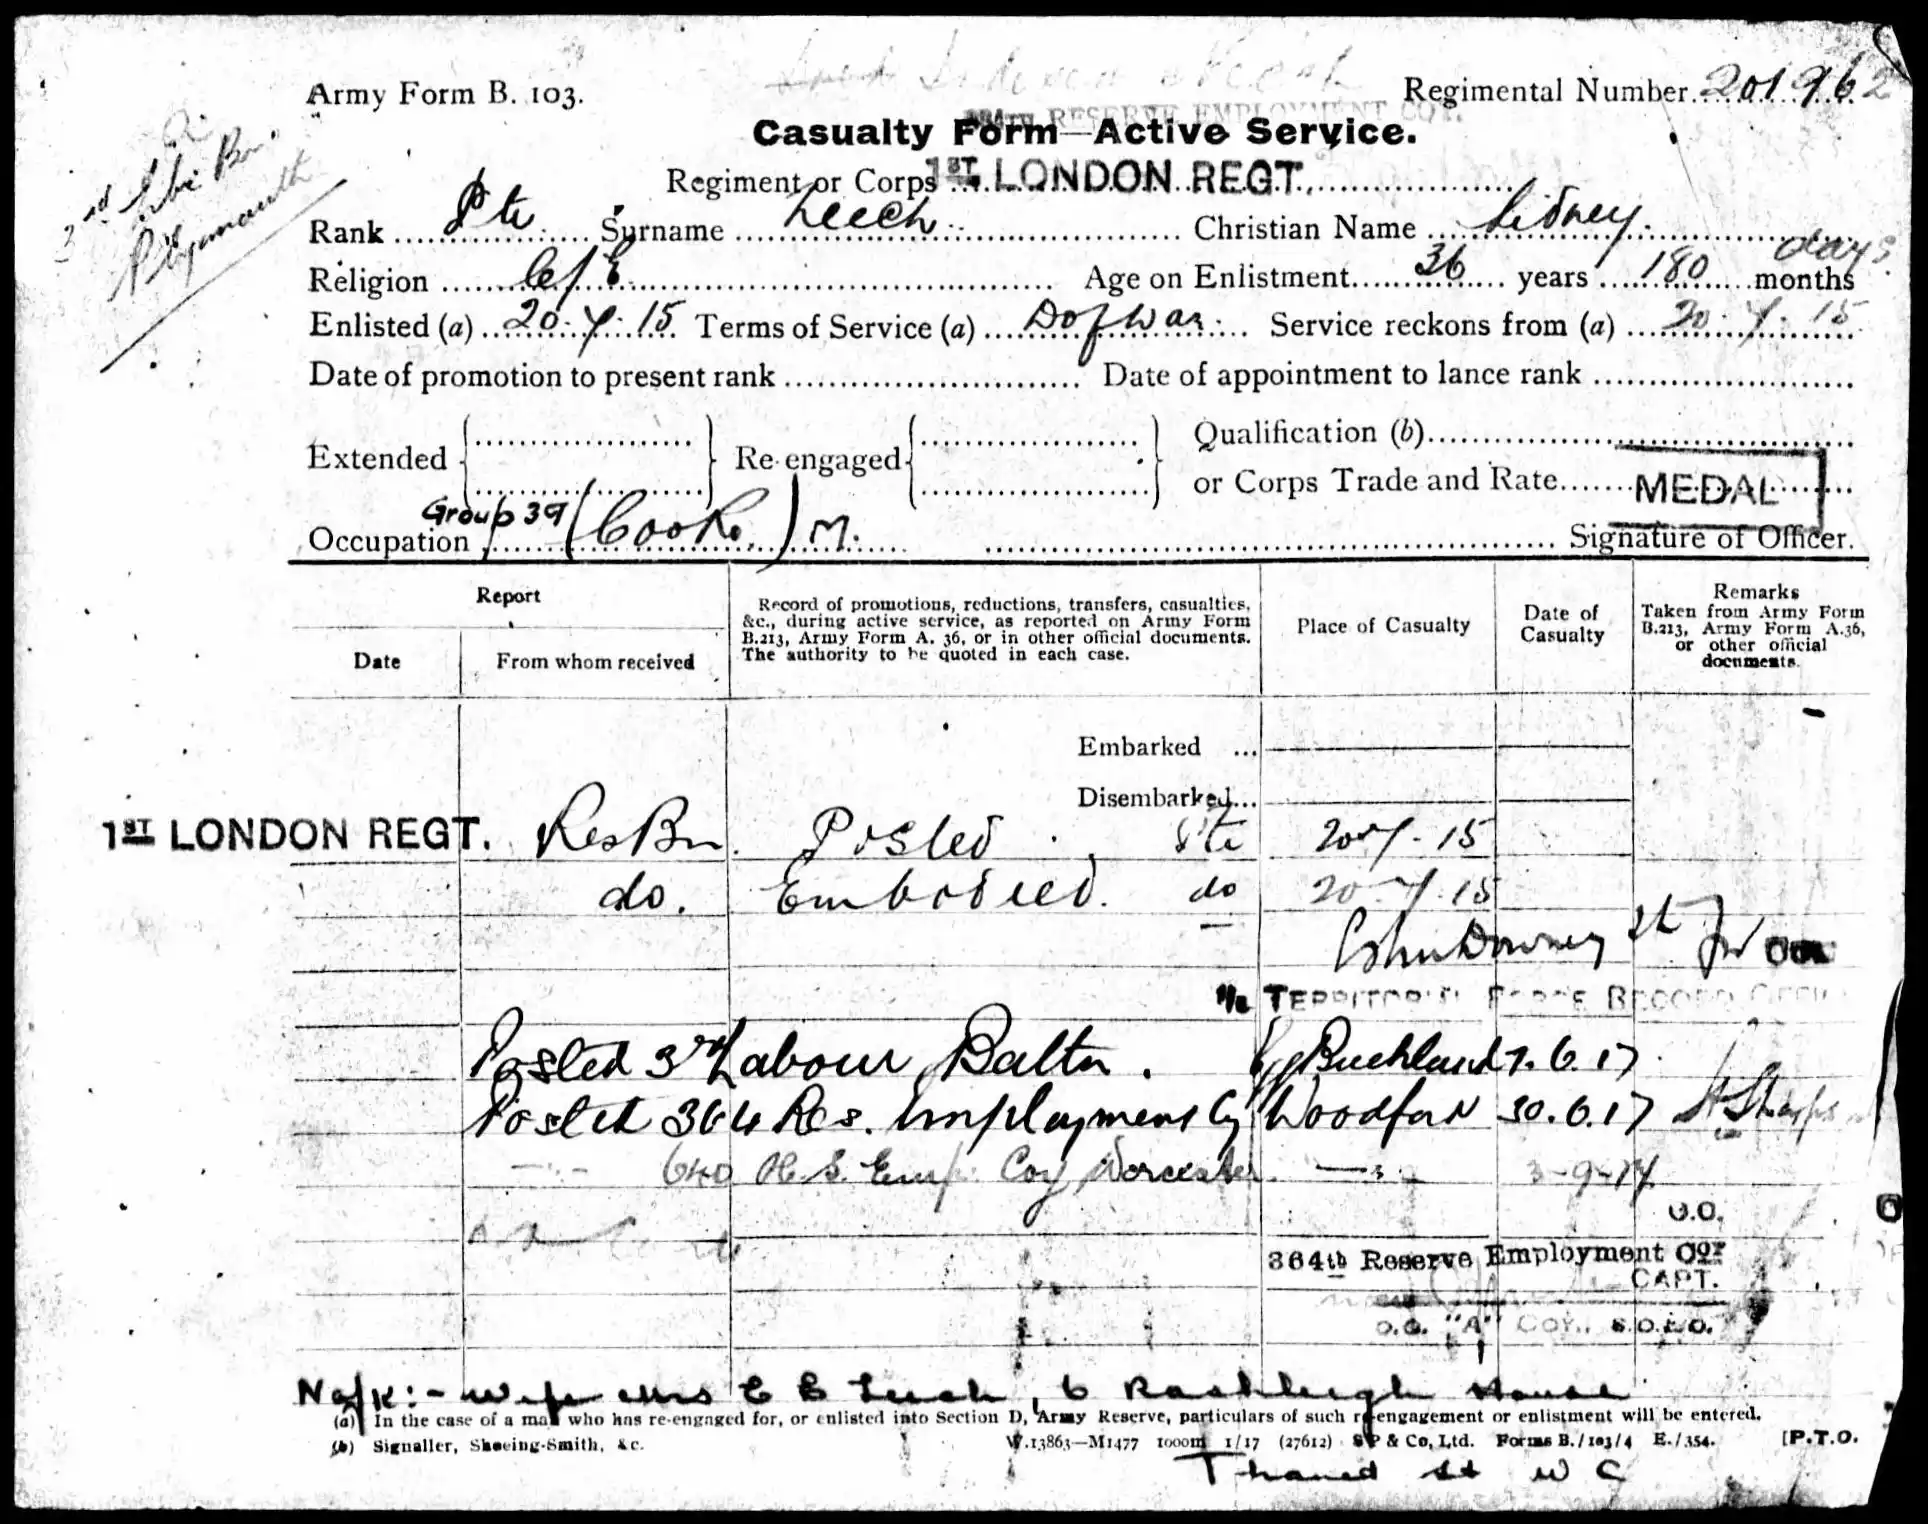 Army Form B. 103.
Regimental Number 201962
RESERVE EMPLOYMENT COY.
Casualty Form—Active Service.
Regiment or Corps 1ST LONDON REGT.
3rd Bn.
Plymouth
Rank Pte Surname Leech Christian Name Sidney
Religion C of E Age on Enlistment 36 years 180 months days
Enlisted (a) 20.7.15 Terms of Service (a) D of War Service reckons from (a) 20.7.15
Date of promotion to present rank Date of appointment to lance rank
Extended Re-engaged Qualification (b)
or Corps Trade and Rate
MEDAL
Group 39
Occupation (Cook) M. Signature of Officer.
Report
Date
From whom received
Record of promotions, reductions, transfers, casualties,
&c., during active service, as reported on Army Form
B.213, Army Form A. 36, or in other official documents.
The authority to be quoted in each case.
Place of Casualty
Date of
Casualty
Remarks
Taken from Army Form
B.213, Army Form A.36,
or other official
documents.
Embarked ...
Disembarked...
1ST LONDON REGT. Res Bn. Posted Pte 20.7.15
do. Embodied. do 20.7.15
John Downey
TERRITORIAL FORCE RECORD
Posted 3rd Labour Baltn. Buckland 7.6.17
Posted 364 Res. Employment Coy Woodford 30.6.17
640 H.S. Emp. Coy Worcester. 3-9-17
O.O.
364th Reserve Employment Coy
CAPT.
O.C. "A" COY.,
N of K:- Wife Mrs E E Leech, 6 Rashleigh House
(a) In the case of a man who has re-engaged for, or enlisted into Section D, Army Reserve, particulars of such re-engagement or enlistment will be entered.
(b) Signaller, Shoeing-Smith, &c. W.13863—M1477 1000m 1/17 (27612) S P & Co, Ltd. Forms B./103/4 E./354. [P.T.O.
Thanet St W C